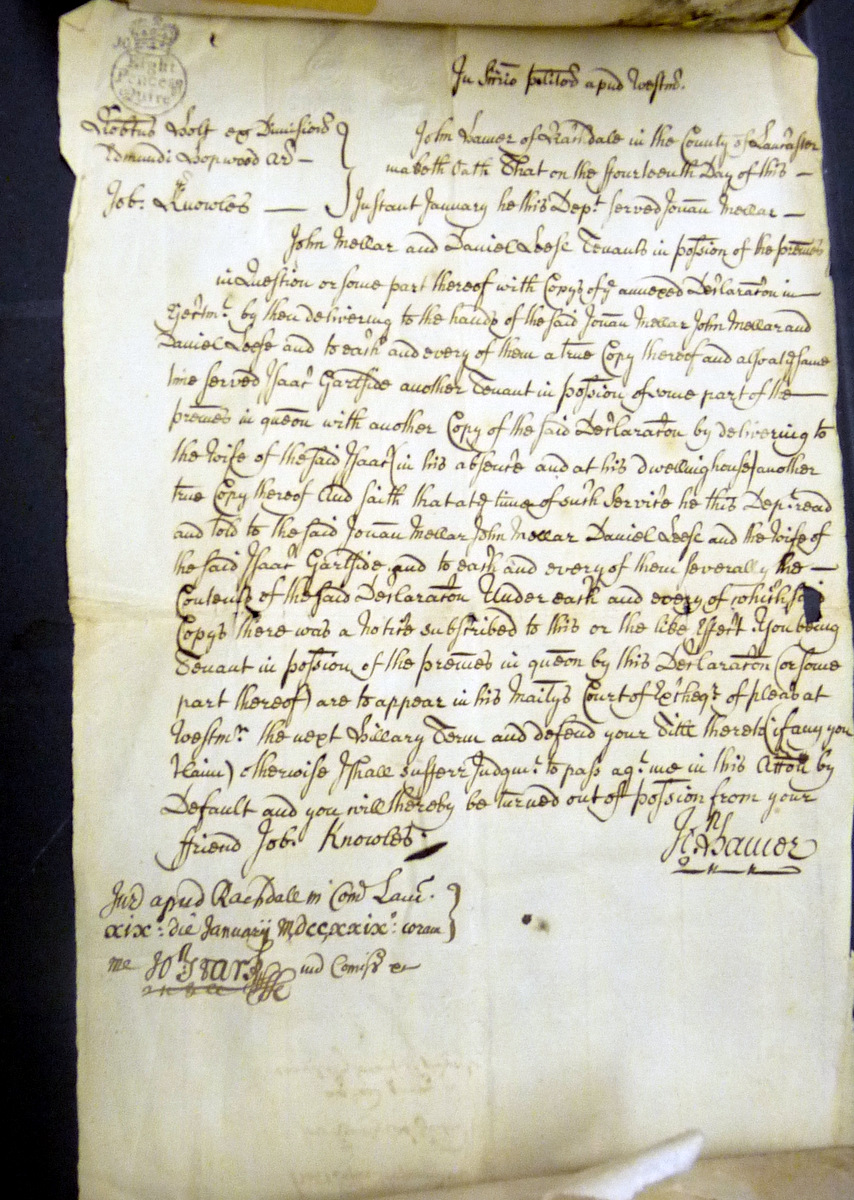 Eight
Pence
p Quire
In Sccrio plitor apud Westmr.
Robtus Holt ex Dimission
Edmundi Hopwood Ar –
Job. Knowles —
John Hamer of Rachdale in the County of Lancaster
maketh Oath That on the ffourteenth Day of this —
Instant January he this Dept. served Jonan Mellar —
John Mellar and Daniel Leese Tenants in possion of the prmes
in Question or some part thereof with Copys of ye annexed Declaraton in —
Ejectmt. by then delivering to the hands of the said Jonan Mellar John Mellar and
Daniel Leese and to each and every of them a true Copy thereof and also at ye same
time served Isaac Gartside another Tenant in possion of some part of the —
prmes in queon with another Copy of the said Declaraton by delivering to
the Wife of the said Isaac (in his absence and at his dwelling house) another
true Copy thereof And saith that at ye time of such Service he this Dept. read
and told to the said Jonan Mellar John Mellar Daniel Leese and the Wife of
the said Isaac Gartside and to each and every of them severally the —
Contents of the said Declaraton Under each and every of which said
Copys there was a Notice subscribed to this or the like Effect. You being
Tenant in possion of the prmes in queon by this Declaraton (or some
part thereof) are to appear in his Maitys Court of Excheqr. of pleas at
Westmr. the next Hillary Term and defend your Title thereto (if any you
Claim) otherwise I shall suffer Judgmt. to pass agt. me in this Accon by
Default and you will thereby be turned out of possion from your
ffriend Job. Knowles.
Jn. Hamer
Jur apud Rachdale in Com Lanc.
xix°. die January Mdccxxix°. coram
me Comisr &c